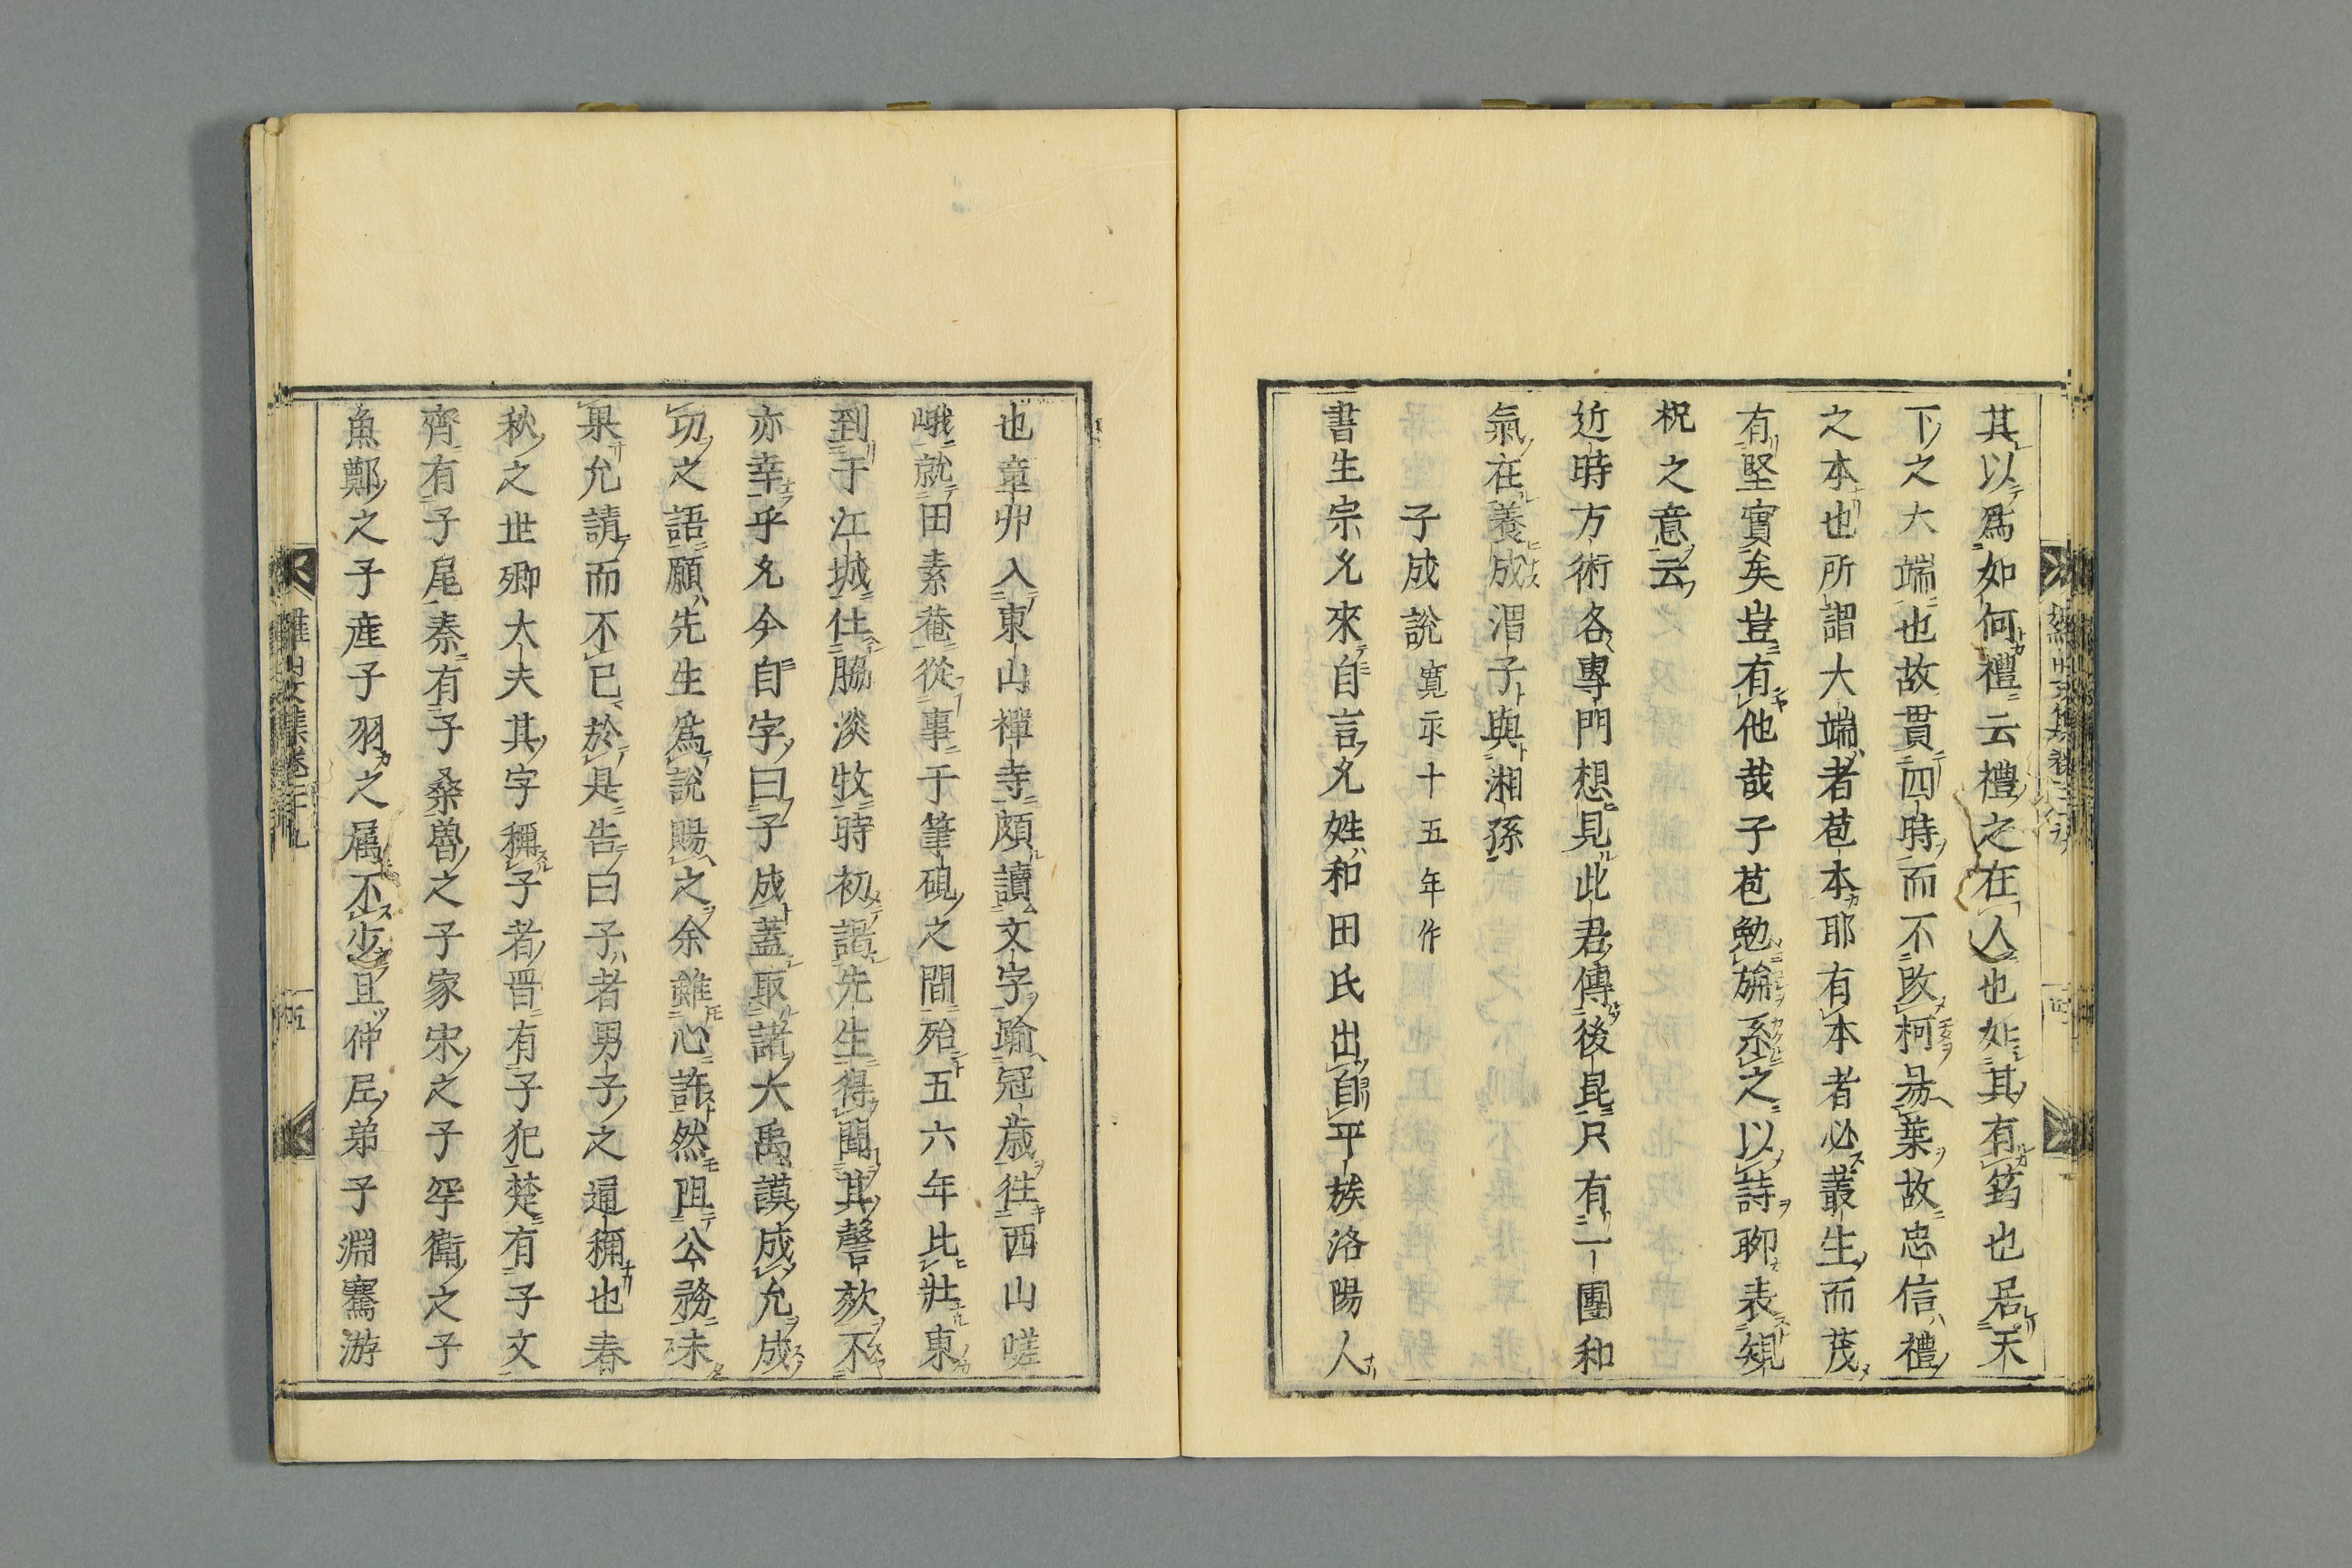 其以爲如何禮云禮之在人也如其有筠也居天
下之大端也故貫四時而不改柯易葉故忠信禮
之本也所謂大端者苞本耶有本者必叢生而茂
有堅實矣豈有他哉子苞勉旃系之以詩聊表規
祝之意云
近時方術各專門想見此君傳後昆只有一團和
氣在養成渭子與湘孫
子成說寬永十五年作
書生宗允來自言允姓和田氏出自平族洛陽人
也童丱入東山禪寺頗讀文字踰冠歲往西山嵯
峨就田素菴從事于筆硯之間殆五六年比壯東
到于江城仕脇淡牧時初謁先生得聞其謦欬不
亦幸乎允今自字曰子成蓋取諸大禹謨成允成
功之語願先生爲說賜之余雖心許然阻公務未
果允請而不已於是告曰子者男子之通稱也春
秋之世卿大夫其字稱子者晋有子犯楚有子文
齊有子尾秦有子桑魯之子家宋之子罕衛之子
魚鄭之子産子羽之属不少且仲尼弟子淵騫游